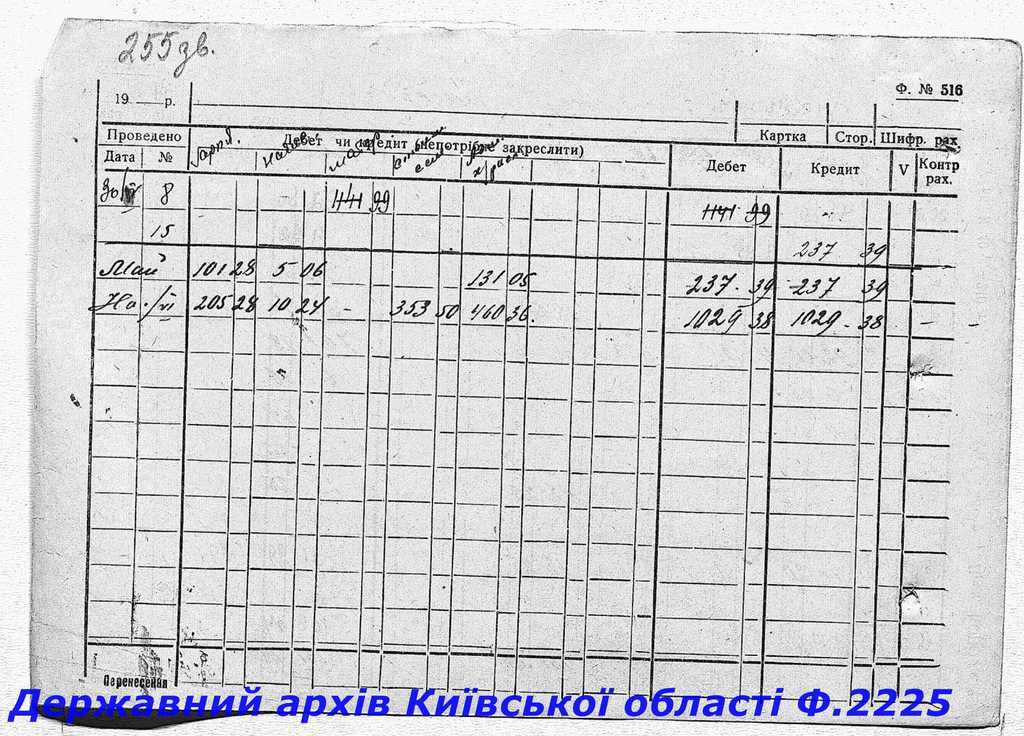 255 зв.
Ф. № 516
19 р.
Картка Стор. Шифр. рах.
Проведено Дебет чи кредит (непотрібне закреслити) Дебет Кредит V Контр рах.
Дата №
30/ 8 441 99 441 99 -
15 237 39
Май 101 28 5 06 131 05 237 . 39 237 39
На ./VI 205 28 10 24 - 353 50 460 36. 1029 38 1029 . 38 - -
Перенесення
Державний архів Київської області Ф.2225